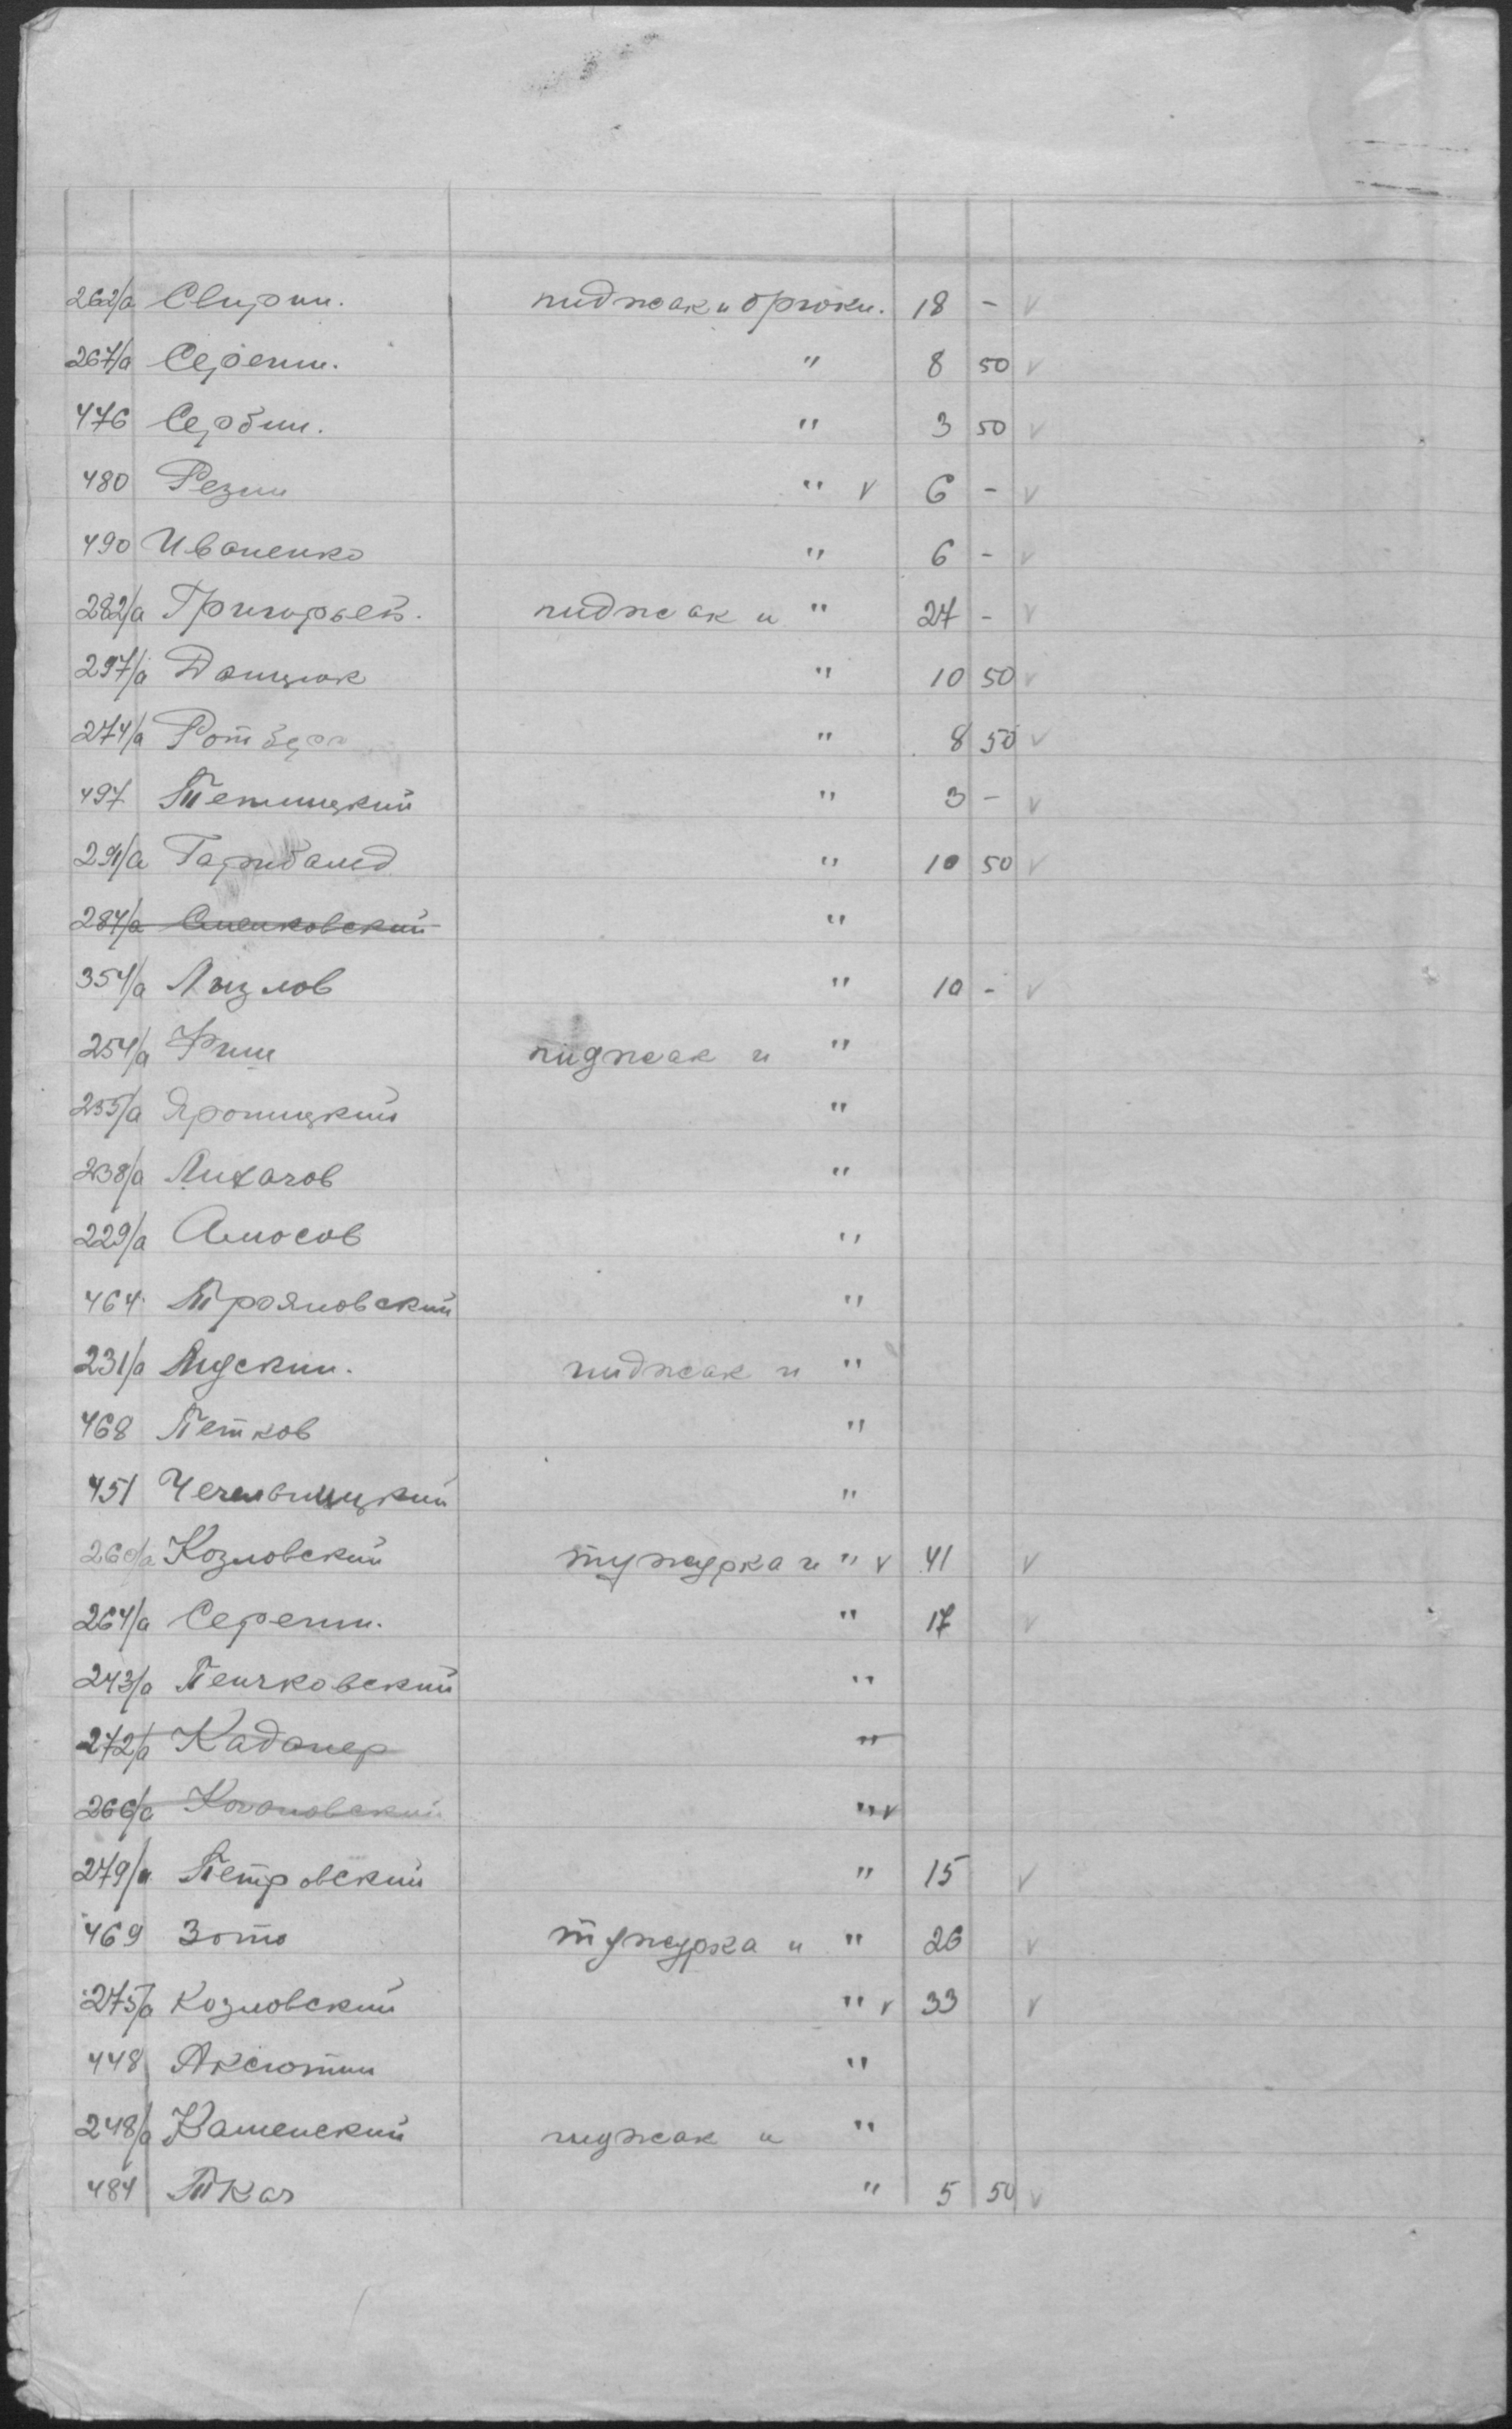 262/а Свирин. пиджак и брюки. 18 - v
267/а Серенин. " 8 50 v
476 Сербин. " 3 50 v
480 Резин " v 6 - v
490 Иваненко " 6 - v
282/а Григорьев. пиджак и " 27 - v
297/а Данцюк " 10 50 v
274/а Ротберг " 8 50 v
497 " 3 - v
291/а Гарибальд " 10 50 v
284/а "
354/а Лызлов " 10 - v
254/а Фиш пиджак и "
235/а Яроницкий "
238/а Лихачов "
229/а Амосов "
464 Трояновский "
231/а Лидскин. пиджак и "
468 Петков "
451 "
260/а Козловский тужурка и " v 41 v
264/а Серенин. " 17 v
243/а Пенчковский "
272/а Кадонер "
266/а "v
279/а Петровский " 15 v
469 Зото тужурка и " 26 v
275/а Козловский " v 33 v
448 Аксютин "
248/а Каменский пиджак и "
484 Ткач " 5 50 v